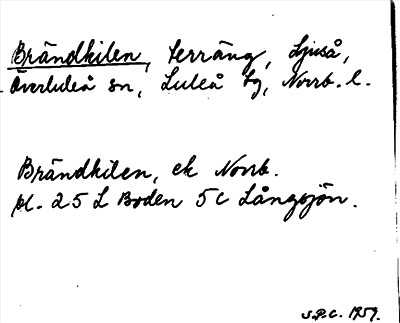 Brändkilen, terräng, Ljuså,
Överluleå sn, Luleå tg, Norrb. l.
Brändkilen, ek Norrb.
pl. 25 L Boden 5c Långsjön.
S.P.C. 1959.